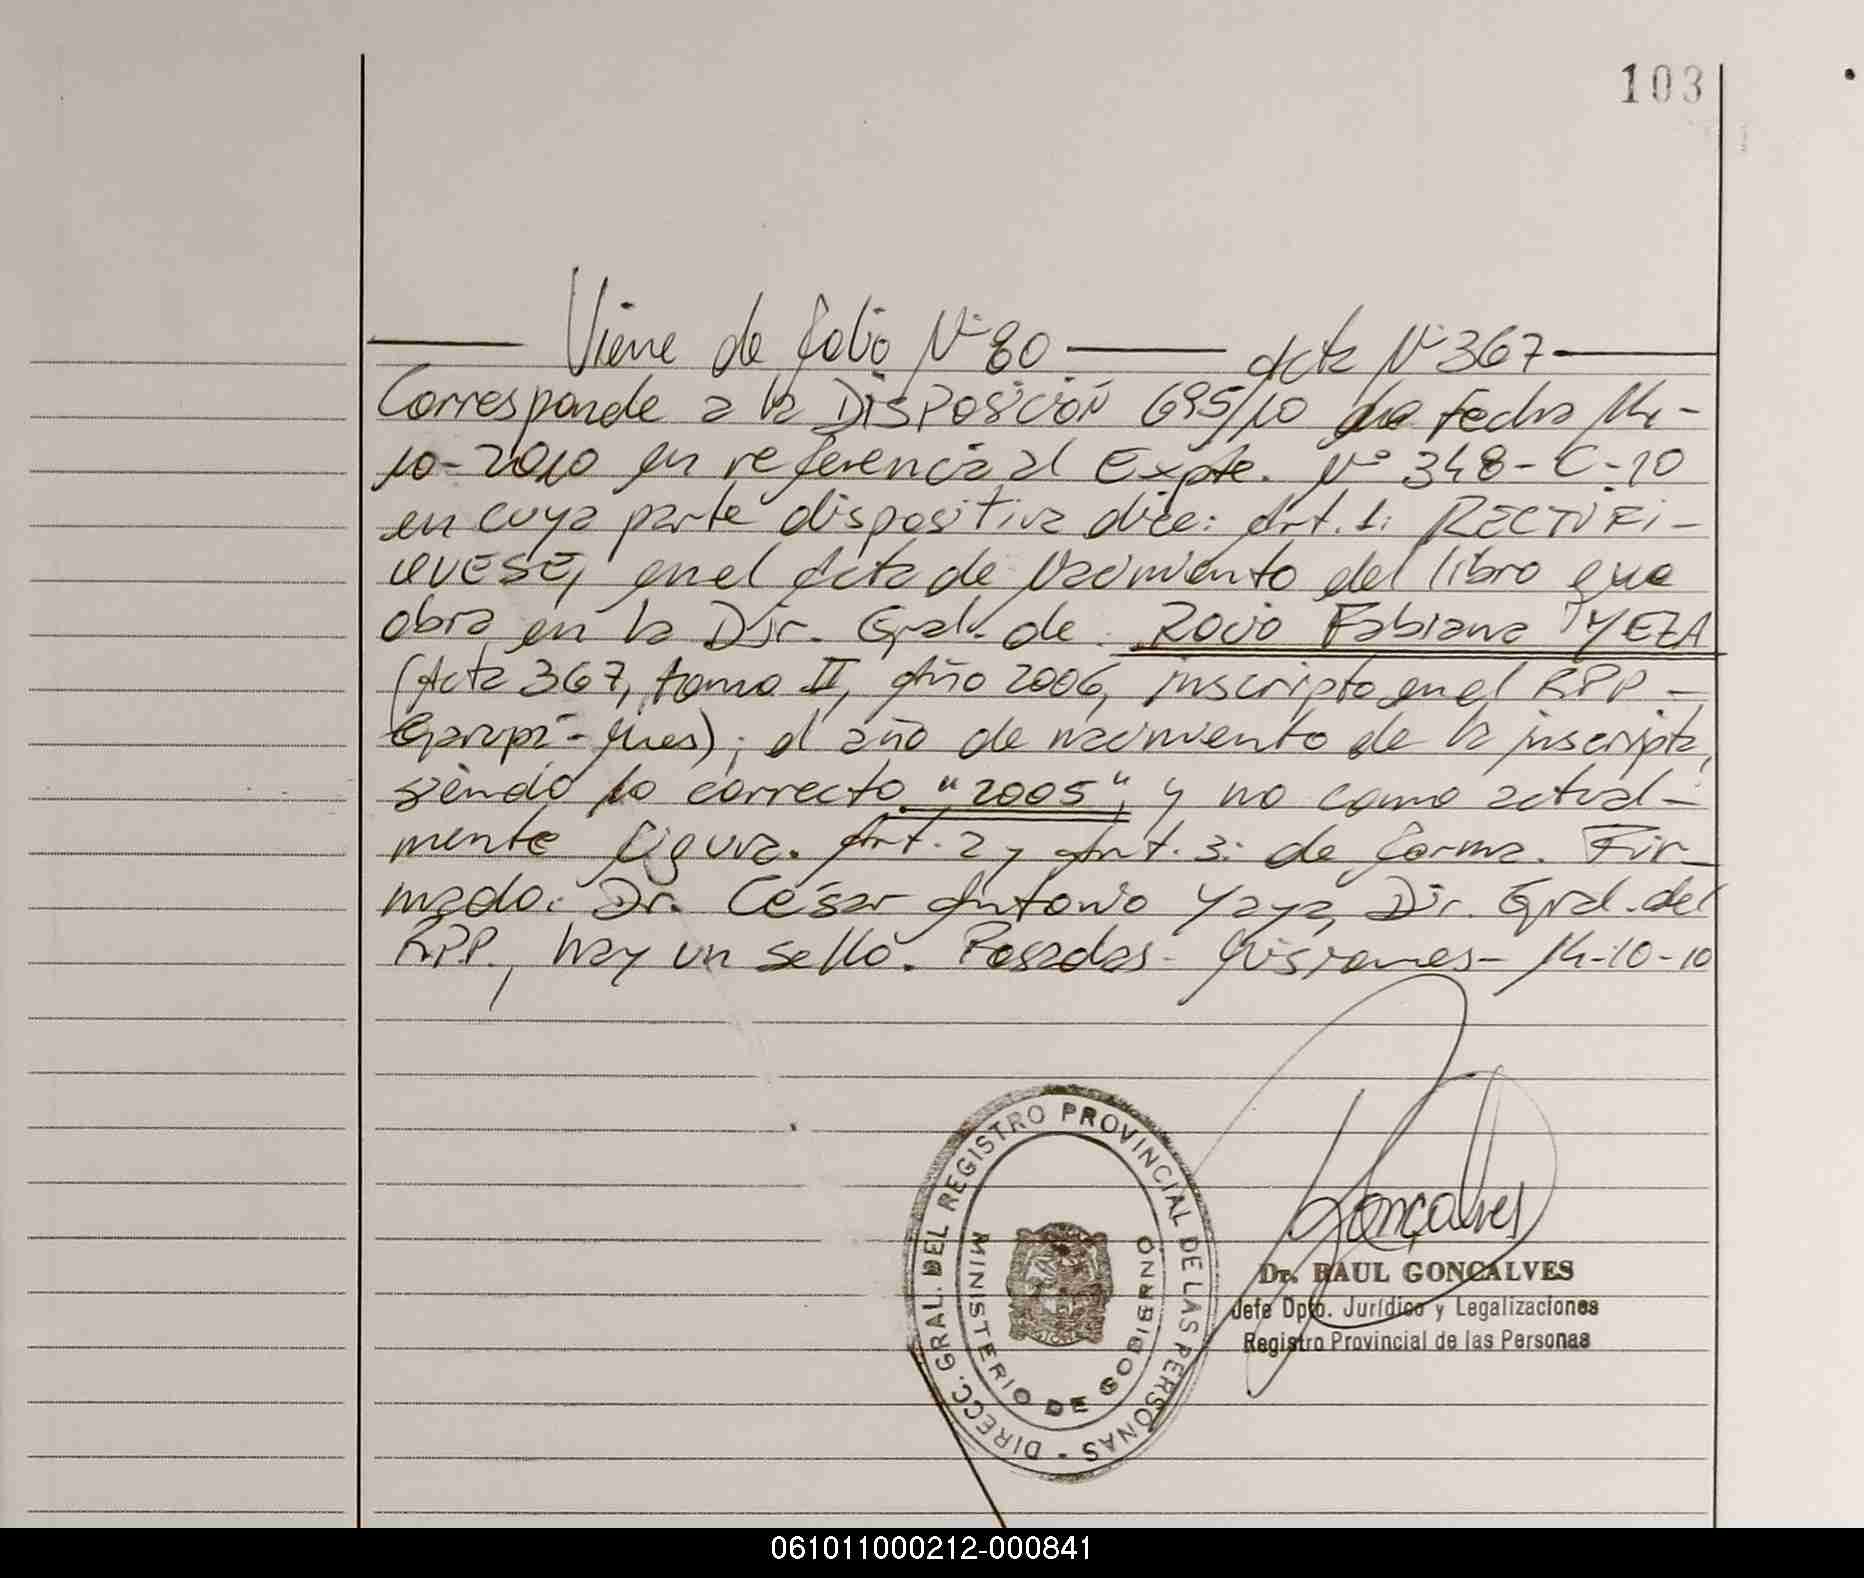 103
Viene de folio Nº 80 — Acta Nº 367 —
Corresponde a la DISPOSICIÓN 695/10 de Fecha 14-
10-2010 en referencia al Expte. Nº 348-C-10
en cuya parte dispositiva dice: Art. 1: RECTIFI-
QUESE, en el Acta de Nacimiento del libro que
obra en la Dir. Gral. de Rocio Fabiana YEZA
(Acta 367, tomo II, Año 2006, inscripto en el RPP -
Garupá - Mnes); el año de nacimiento de la inscripta,
siendo lo correcto "2005", y no como actual-
mente figura. Art. 2 y Art. 3: de forma. Fir-
mado: Dr. César Antonio Yaya, Dir. Gral. del
RPP., hay un sello. Posadas - Misiones - 14-10-10
DIRECC. GRAL. DEL REGISTRO PROVINCIAL DE LAS PERSONAS -
MINISTERIO DE GOBIERNO
Gonçalves
Dr. RAUL GONÇALVES
Jefe Dpto. Jurídico y Legalizaciones
Registro Provincial de las Personas
061011000212-000841